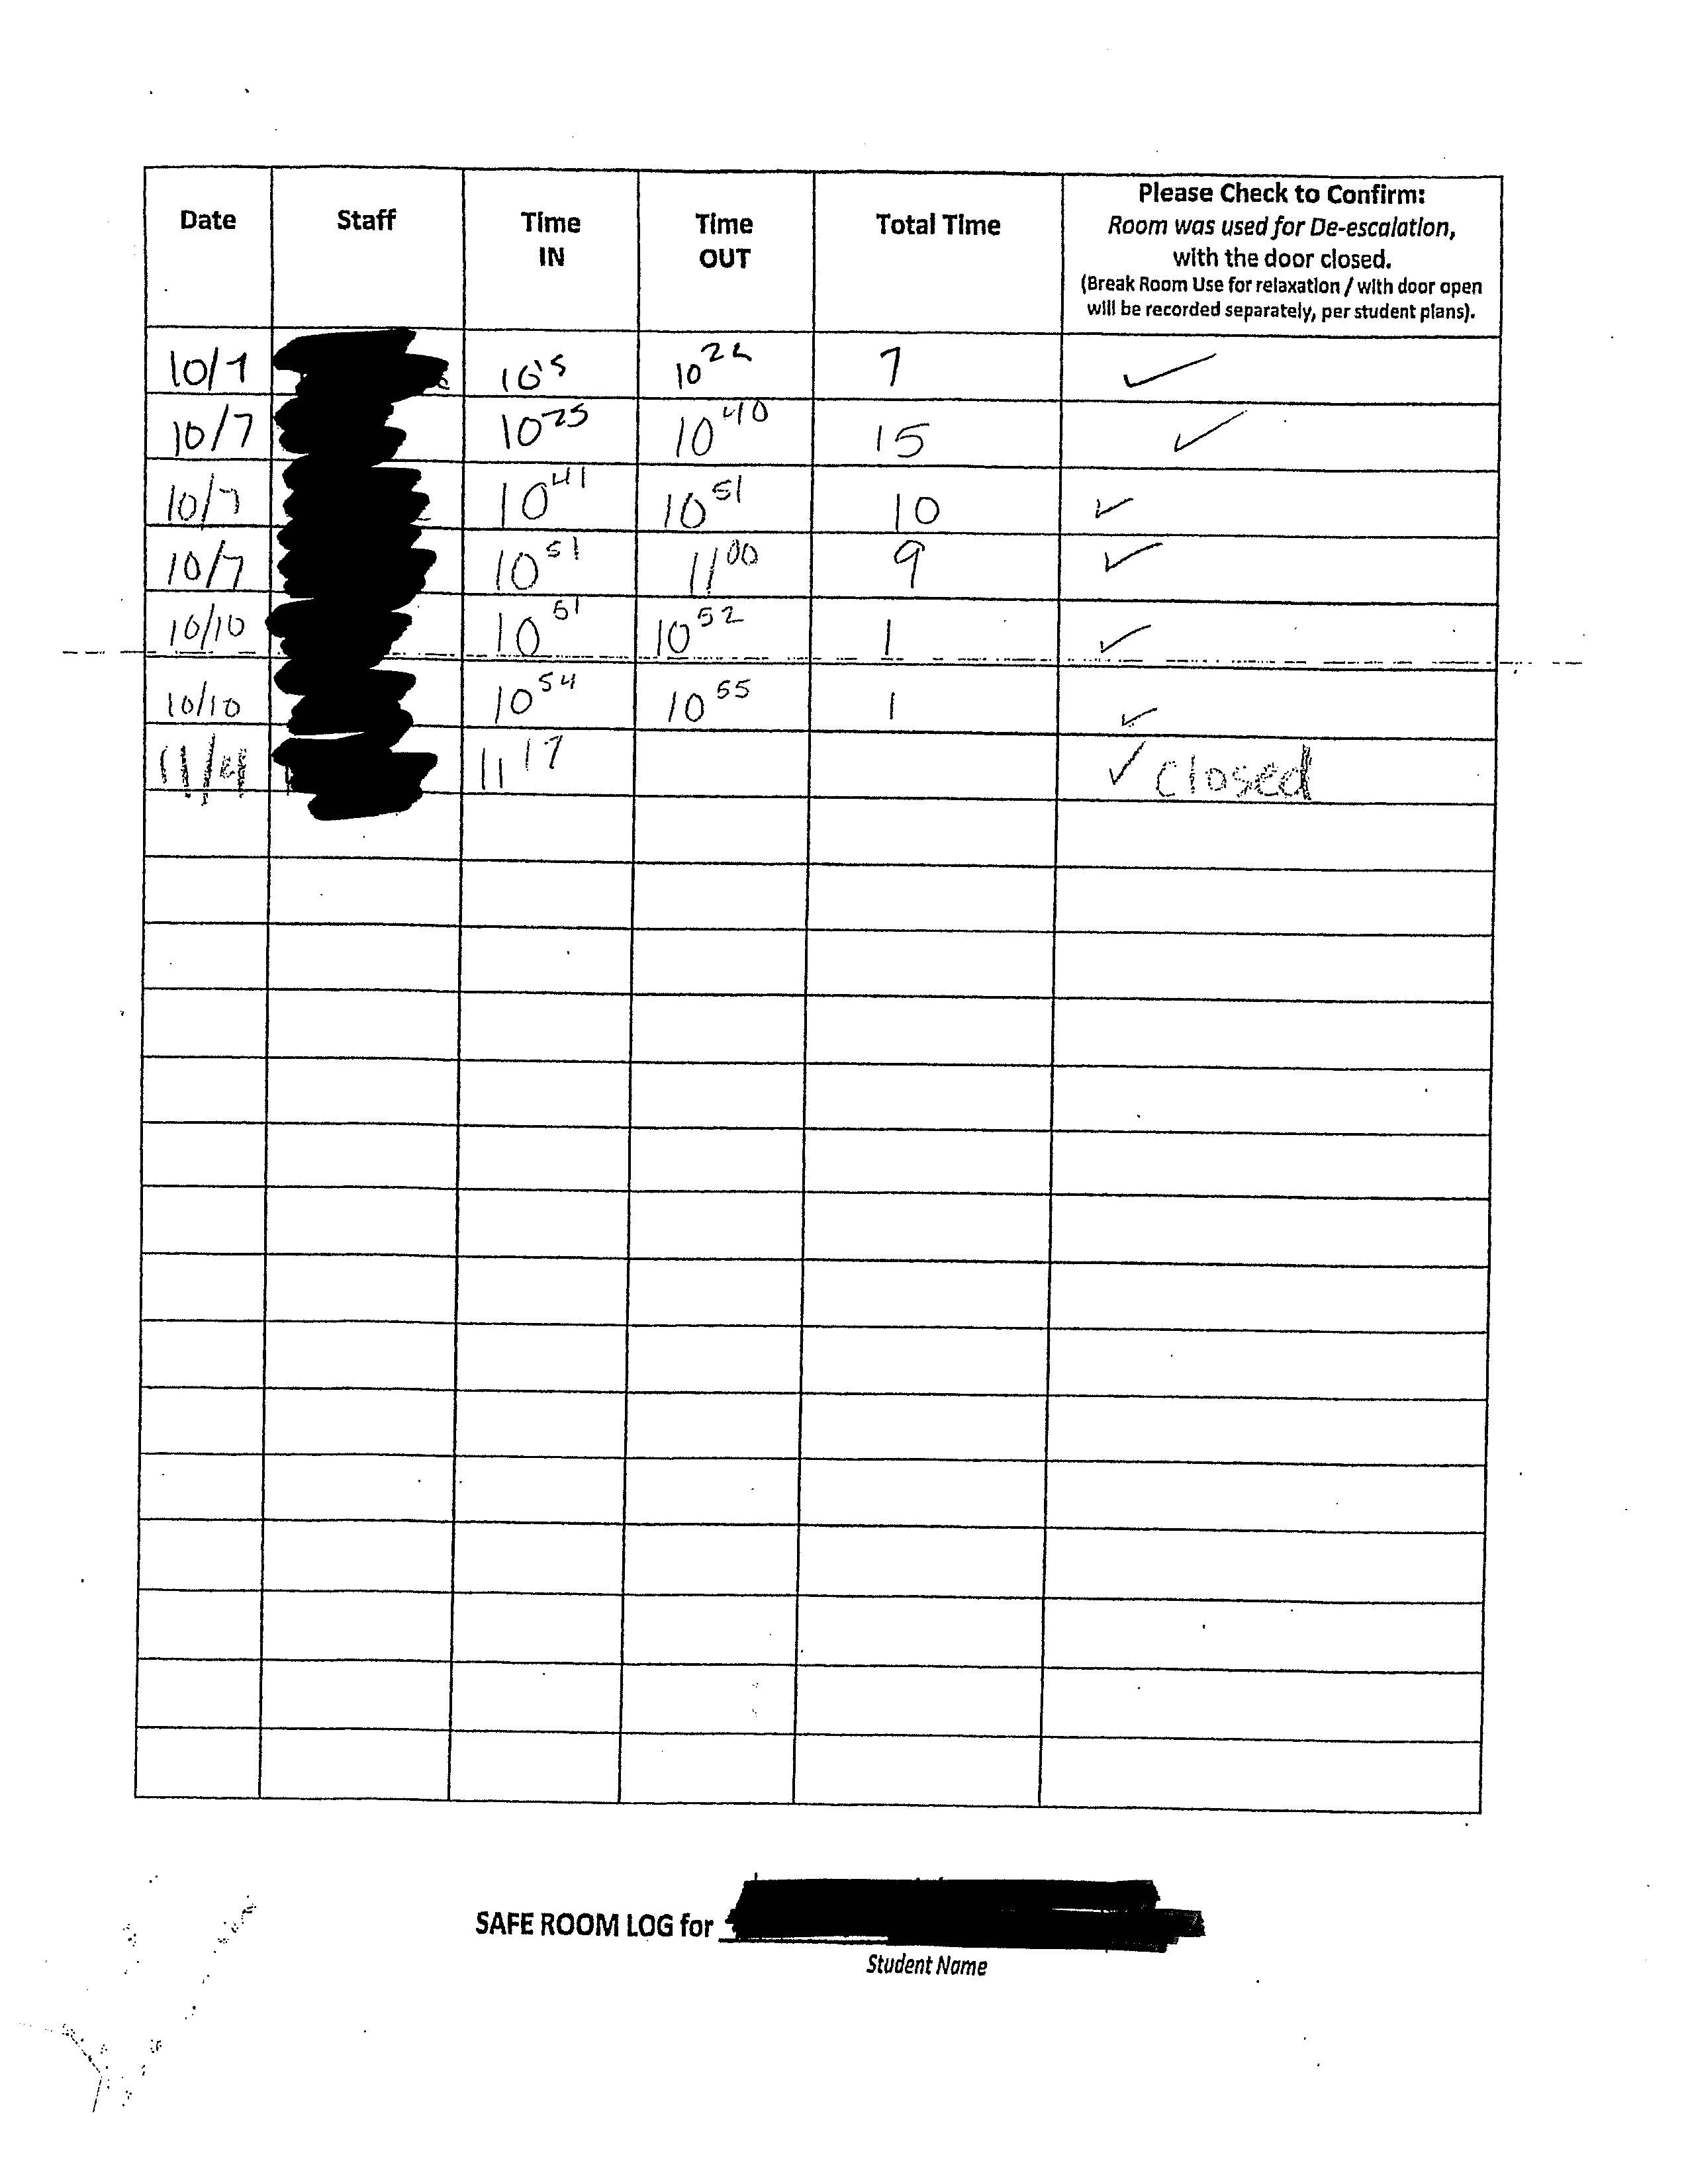 Date Staff Time IN Time OUT Total Time Please Check to Confirm:
Room was used for De-escalation,
with the door closed.
(Break Room Use for relaxation / with door open
will be recorded separately, per student plans).
10/7 10 22 7 ✓
10/7 10 25 10 40 15 ✓
10/7 10 41 10 51 10 ✓
10/7 10 51 11 00 9 ✓
10/10 10 51 10 52 1 ✓
10/10 10 54 10 55 1 ✓
11/4 11 17 ✓ closed
SAFE ROOM LOG for
Student Name